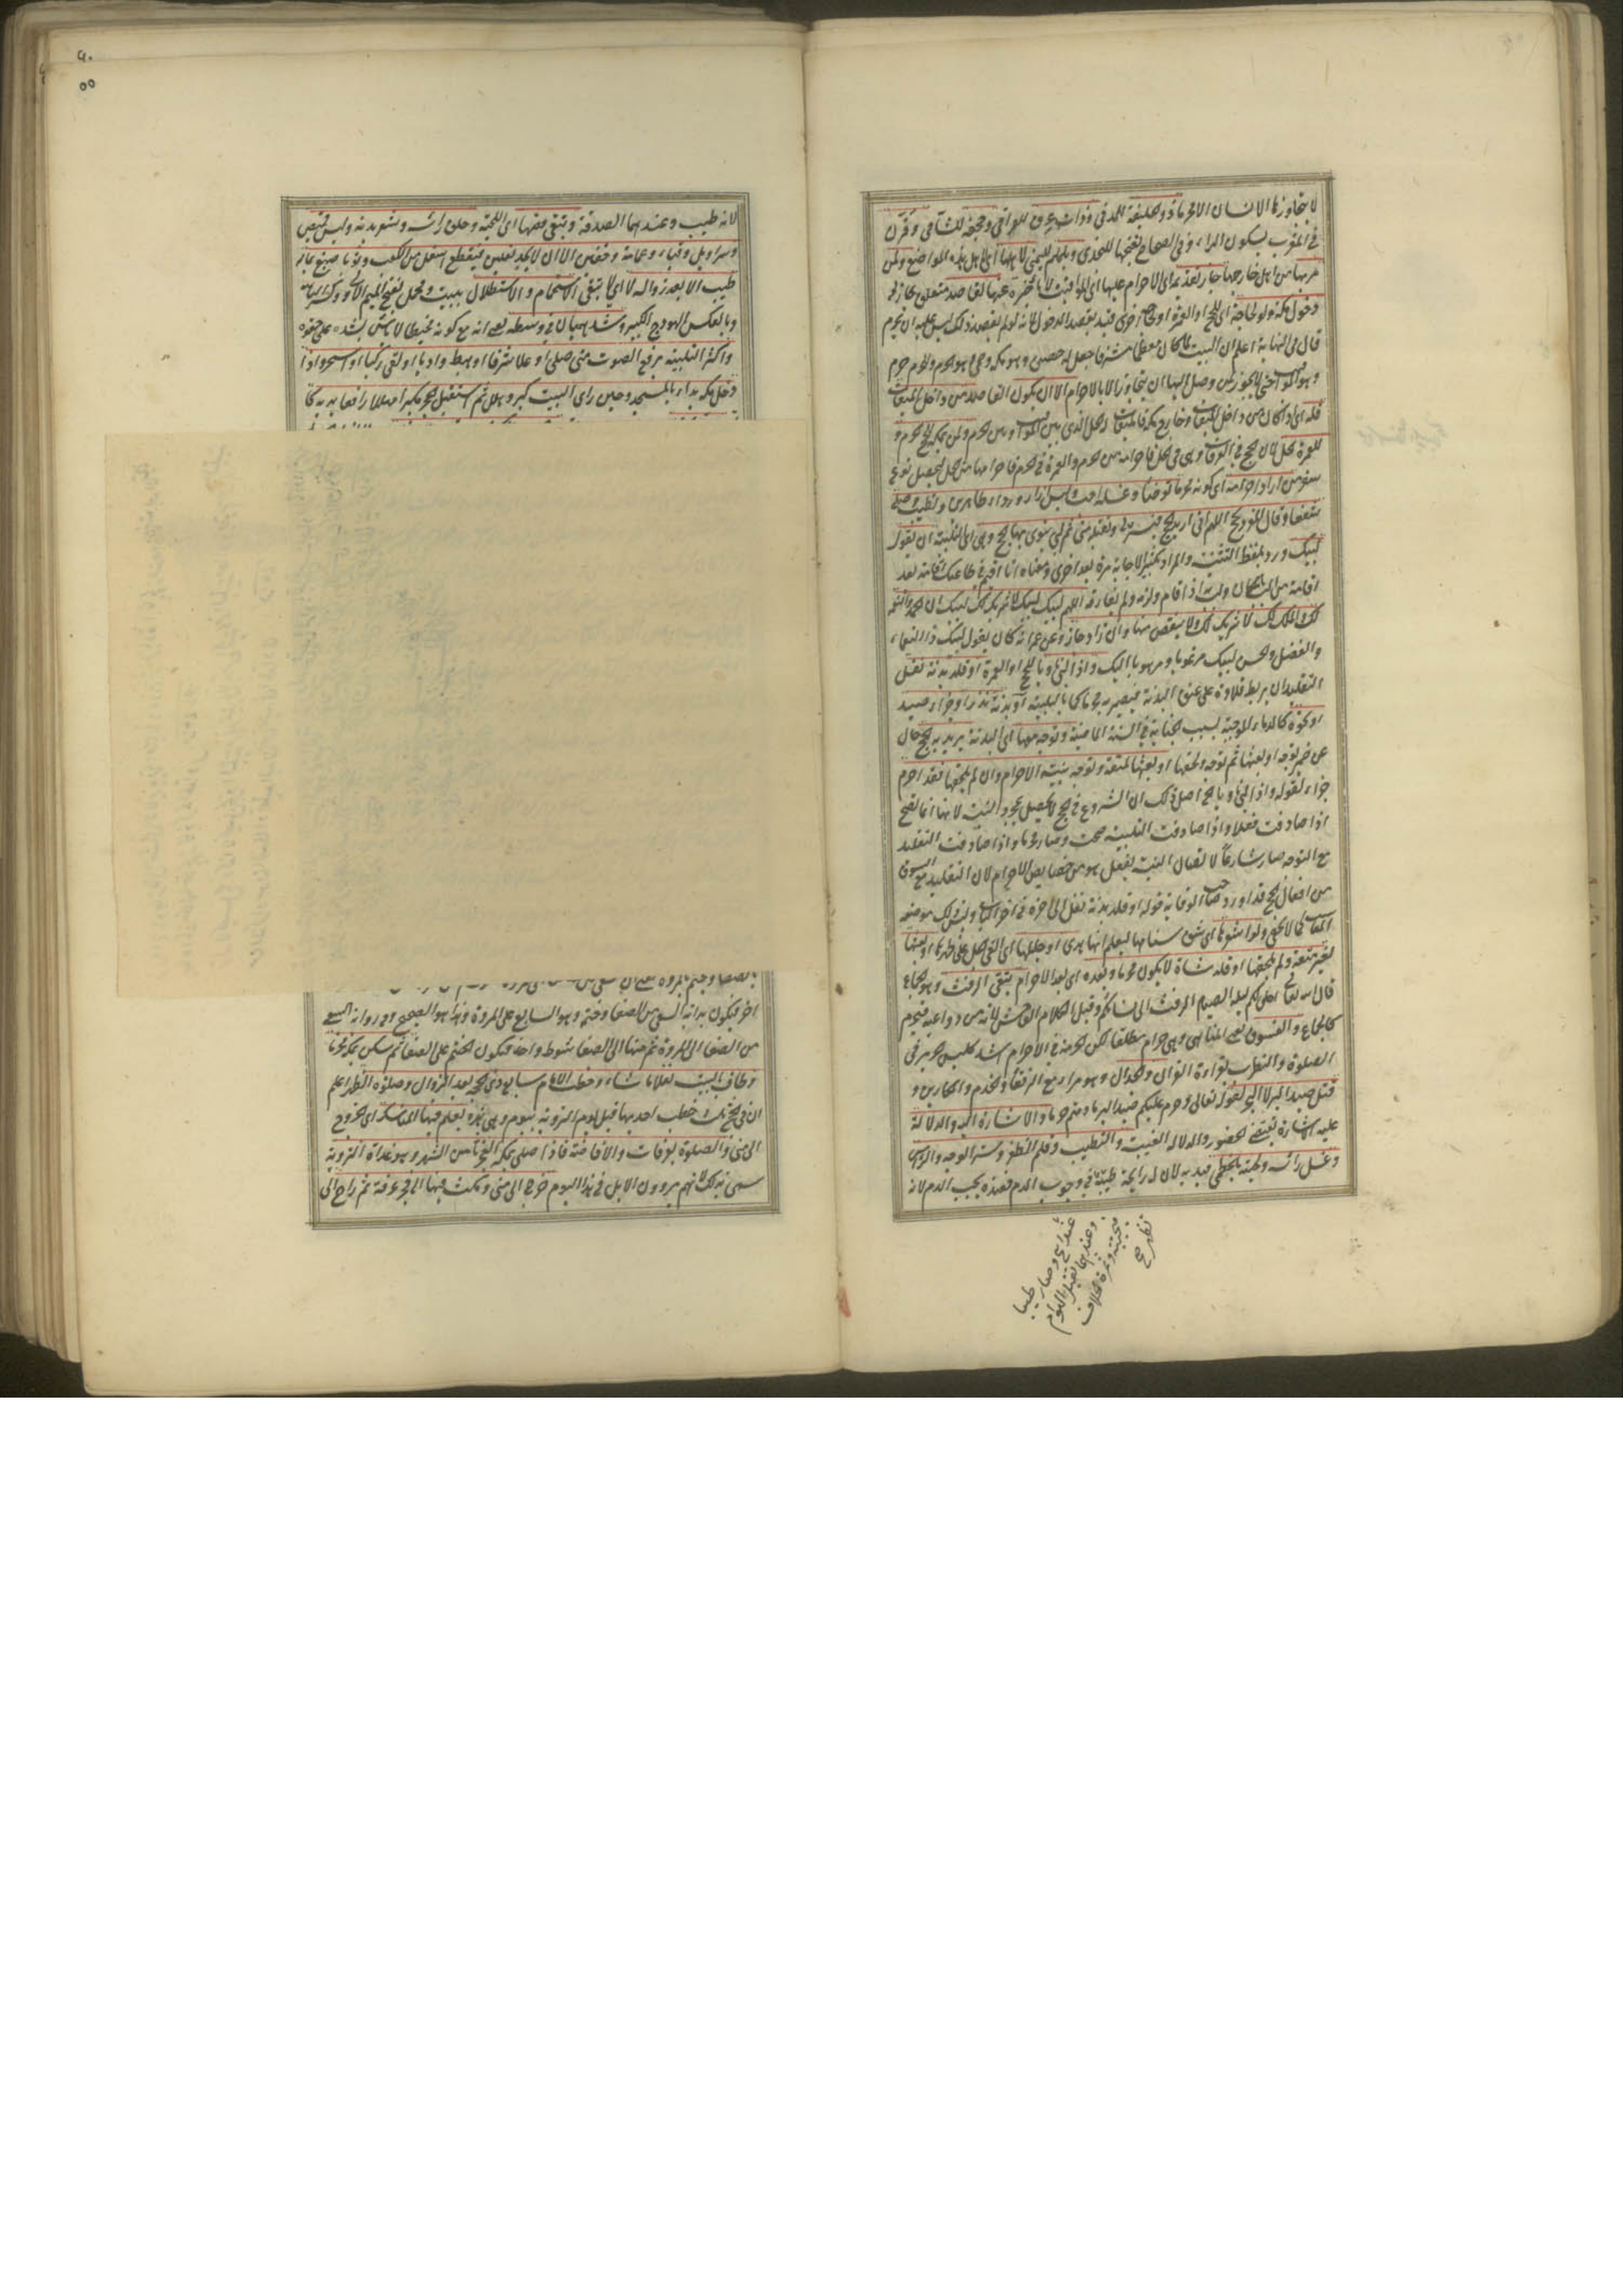 لا يتجاوزها الانسان الا محرما ذو الحليفة للمدني وذات عرق للعراقي وجحفة للشامي وقرن
في المغرب بسكون الراء وفي الصحاح بفتحها للنجدي ويلملم لليمني لاهلها اى لاهل هذه المواضع ولمن
مر بها من اهل خارجها جاز تقديمه اى الاحرام عليها اى المواقيت لا تاخيره عنها لقاصد متعلق بجاز لى
دخول مكة ولو لحاجة اى للحج او العمرة او حاجة اخرى قيد بقصد الدخول لانه لو لم يقصد ذلك ليس عليه ان يحرم
قال في النهاية اعلم ان البيت لما كان معظما مشرفا جعل له حصن وهو مكة وحمى وهو الحرم وللحرم حرم
وهو المواقيت حتى لا يجوز لمن وصل اليها ان يتجاوزها الا بالاحرام الا ان يكون القاصد من داخل الميقات
فله اى وان كان من داخل الميقات وخارج مكة فالميقات الحل الذى بين المواقيت وبين الحرم ولمن بمكة للحج الحرم و
للعمرة الحل لان الحج في عرفات وهى في الحل فاحرامه من الحرم والعمرة في الحرم فاحرامها من الحل ليحصل نوع
سفر من اراد احرامه اى كونه محرما توضأ وغسله احب ولبس ازار ورداء طاهرين وتطيب وصلى
شفعا وقال المفرد بالحج اللهم انى اريد الحج فيسره لى وتقبله منى ثم لبى ينوى بها الحج وهى اى التلبية ان تقول
لبيك ورد بلفظ التثنية والمراد تكثير الاجابة مرة بعد اخرى ومعناه انا اقيم في طاعتك اقامة بعد
اقامة من الب بالمكان ولب به اذا اقام ولزمه ولم يفارقه اللهم لبيك لبيك لا شريك لك لبيك ان الحمد والنعمة
لك والملك لك لا شريك لك ولا ينقص منها وان زاد جاز وعن عمر انه كان يقول لبيك ذا النعماء
والفضل والحسن لبيك مرغوبا ومرهوبا اليك واذا لبى ناويا بالحج او العمرة او قلد بدنة نفل
التقليد ان يربط قلادة على عنق البدنة فيصير به محرما كما بالتلبية او بدنة نذر او جزاء صيد
او نحوه كالدماء الموجبة بسبب الجناية في السنة الماضية وتوجه معها اى البدنة يريد به الحج حال
عن ضمير توجه او بعثها ثم توجه ولحقها او بعثها لمتعة وتوجه بنية الاحرام وان لم يلحقها فقد احرم
جزاء لقوله واذا لبى ناويا الخ اصل ذلك ان الشروع في الحج لا يحصل بمجرد النية لانها انما تصح
اذا صادفت فعلا واذا صادفت التلبية صحت وصار محرما واذا صادفت التقليد
مع التوجه صار شارعا لاتصال النية بفعل هو من خصايص الاحرام لان التقليد مع السوق
من افعال الحج قد اورد صاحب الوقاية قوله او قلد بدنة نفل الى اخره في اخر الباب وليس ذلك موضعه
المناسب كما لا يخفى ولو اشعرها اى شق سنامها ليعلم انها هدى او جللها اى القى الجل على ظهرها او بعثها
لغير متعة ولم يلحقها او قلد شاة لا يكون محرما وبعده اى بعد الاحرام يتقى الرفث وهو الجماع
قال الله تعالى احل لكم ليلة الصيام الرفث الى نسائكم وقيل الكلام الفاحش لانه من دواعيه فيحرم
كالجماع والفسوق يعنى المناهى وهى حرام مطلقا لكن الحرمة في الاحرام اشد كلبس الحرير في
الصلوة والتطريب لقراءة القران والجدال وهو مراء مع الرفقاء والخدم والمكارين و
قتل صيد البر لا البحر لقوله تعالى وحرم عليكم صيد البر ما دمتم حرما والاشارة اليه والدلالة
عليه الاشارة تقتضى الحضور والدلالة الغيبة والتطيب وقلم الظفر وستر الوجه والراس
وغسل راسه ولحيته بالخطمى قيد به لان له رايحة طيبة في وجوب الدم فعنده يجب الدم لانه
لانه طيب وعندهما الصدقة ويتقى قصها اى اللحية وحلق راسه وشعر بدنه ولبس قميص
وسراويل وقباء وعمامة وخفين الا ان لا يجد نعلين فيقطع اسفل من الكعب وثوبا صبغ بما له
طيب الا بعد زواله لا اى لا يتقى الاستحمام والاستظلال ببيت ومحمل بفتح الميم الاول وكسر الثانية
وبالعكس الهودج الكبير وشد هميان في وسطه يعنى انه مع كونه مخيطا لا باس بشده على حقوه
واكثر التلبية برفع الصوت متى صلى او علا شرفا او هبط واديا او لقى ركبا او اسحر واذا
دخل مكة بداء بالمسجد وحين راى البيت كبر وهلل ثم استقبل الحجر مكبرا مهللا رافعا يديه كما
اخر فيكون بداية السعى من الصفا وختمه وهو السابع على المروة وهذا هو الصحيح وفي رواية السعى
من الصفا الى المروة ثم منها الى الصفا شوط واحد فيكون الختم على الصفا ثم سكن بمكة محرما
وطاف بالبيت نفلا ما شاء وخطب الامام سابع ذى الحجة بعد الزوال وصلوة الظهر اعلم
ان في الحج ثلث خطب احديها قبل يوم التروية بيوم وهى هذه يعلم فيها المناسك اى الخروج
الى منى والصلوة بعرفات والافاضة فاذا صلى بمكة الفجر ثامن الشهر وهو غداة التروية
سمى به لانهم يروون الابل في هذا اليوم خرج الى منى ومكث فيها الى فجر عرفة ثم راح الى